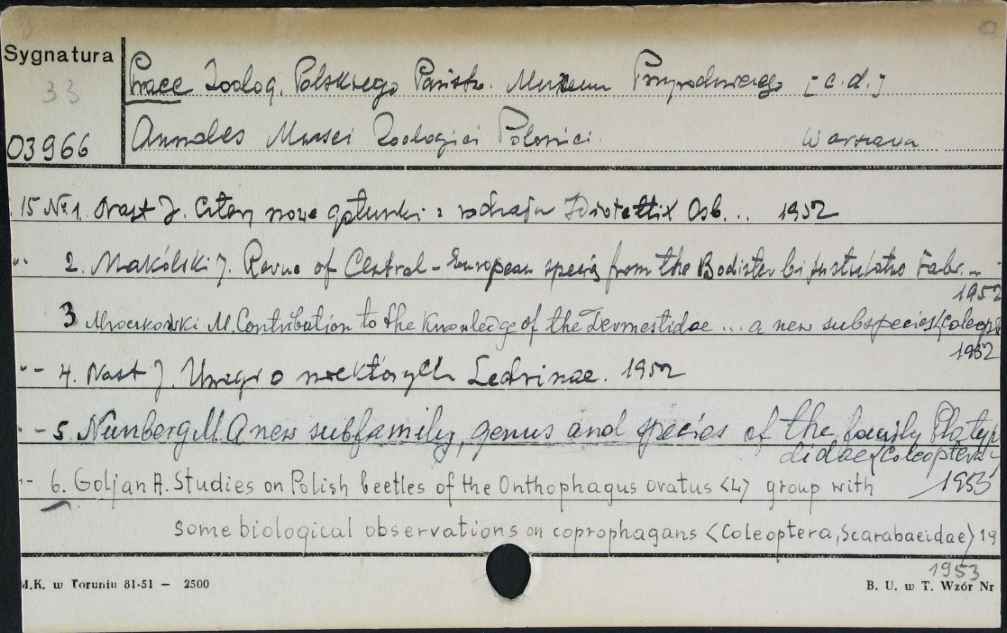 Sygnatura
33
Prace Zoolog. Polskiego Państw. Muzeum Przyrodniczego [c.d.]
03966
Annales Musei Zoologici Polonici Warszawa
15 № 1. Nast J. Cztery nowe gatunki z rodzaju Idiotettix Osb... 1952
" 2. Makólski J. Revue of Central-European species from the Bodister bipustulatus Fabr. -
1952
3 Mroczkowski M. Contribution to the Knowledge of the Dermestidae ... a new subspecies (Coleopt.
1952
" - 4. Nast J. Uwagi o niektórych Ledrinae. 1952
" - 5. Nunberg M. A new subfamily, genus and species of the family Platyp
didae (Coleoptera)
1953
" - 6. Goljan A. Studies on Polish beetles of the Onthophagus ovatus <L> group with
some biological observations on coprophagans <Coleoptera, Scarabaeidae> 19
1953
M.K. w Toruniu 81-51 — 2500
B. U. w T. Wzór Nr